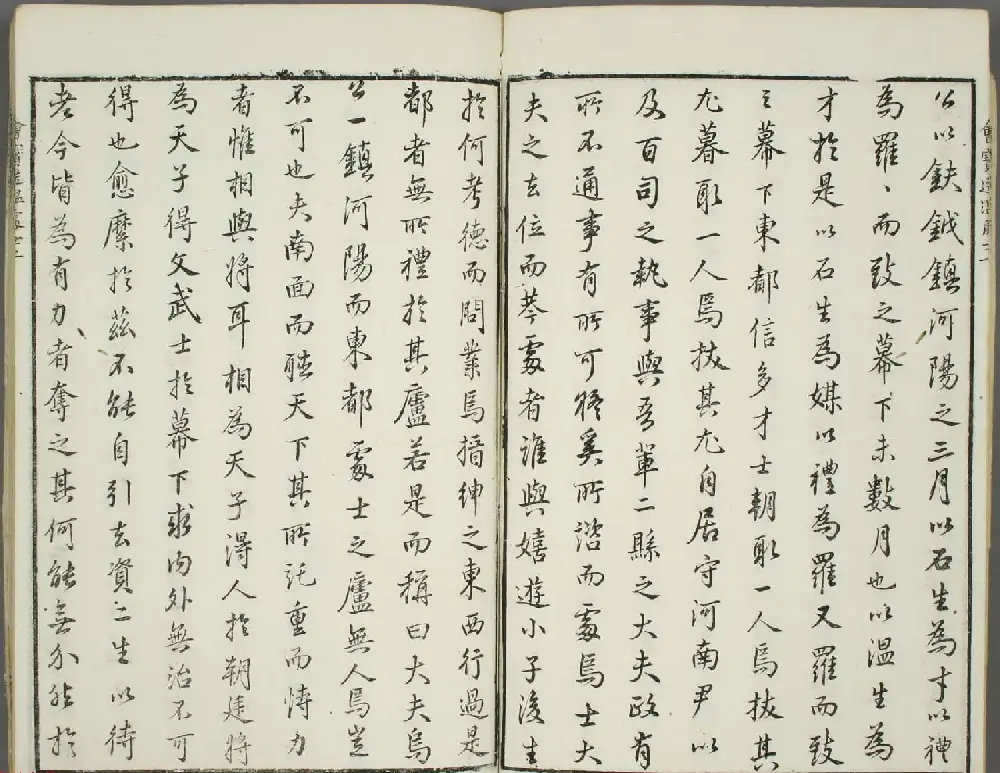 公以鈇鉞鎮河陽之三月以石生為才以禮
為羅〻而致之幕下未數月也以溫生為
才於是以石生為媒以禮為羅又羅而致
之幕下東都信多才士朝取一人焉拔其
尤暮取一人焉拔其尤自居守河南尹以
及百司之執事與吾輩二縣之大夫政有
所不通事有所可疑奚所諮而處焉士大
夫之去位而巷處者誰與嬉遊小子後生
於何考德而問業焉搢紳之東西行過是
都者無所禮於其廬若是而稱曰大夫烏
公一鎮河陽而東都處士之廬無人焉豈
不可也夫南面而聽天下其所託重而恃力
者惟相與將耳相為天子得人於朝廷將
為天子得文武士於幕下求內外無治不可
得也愈縻於茲不能自引去資二生以待
老今皆為有力者奪之其何能無介然於